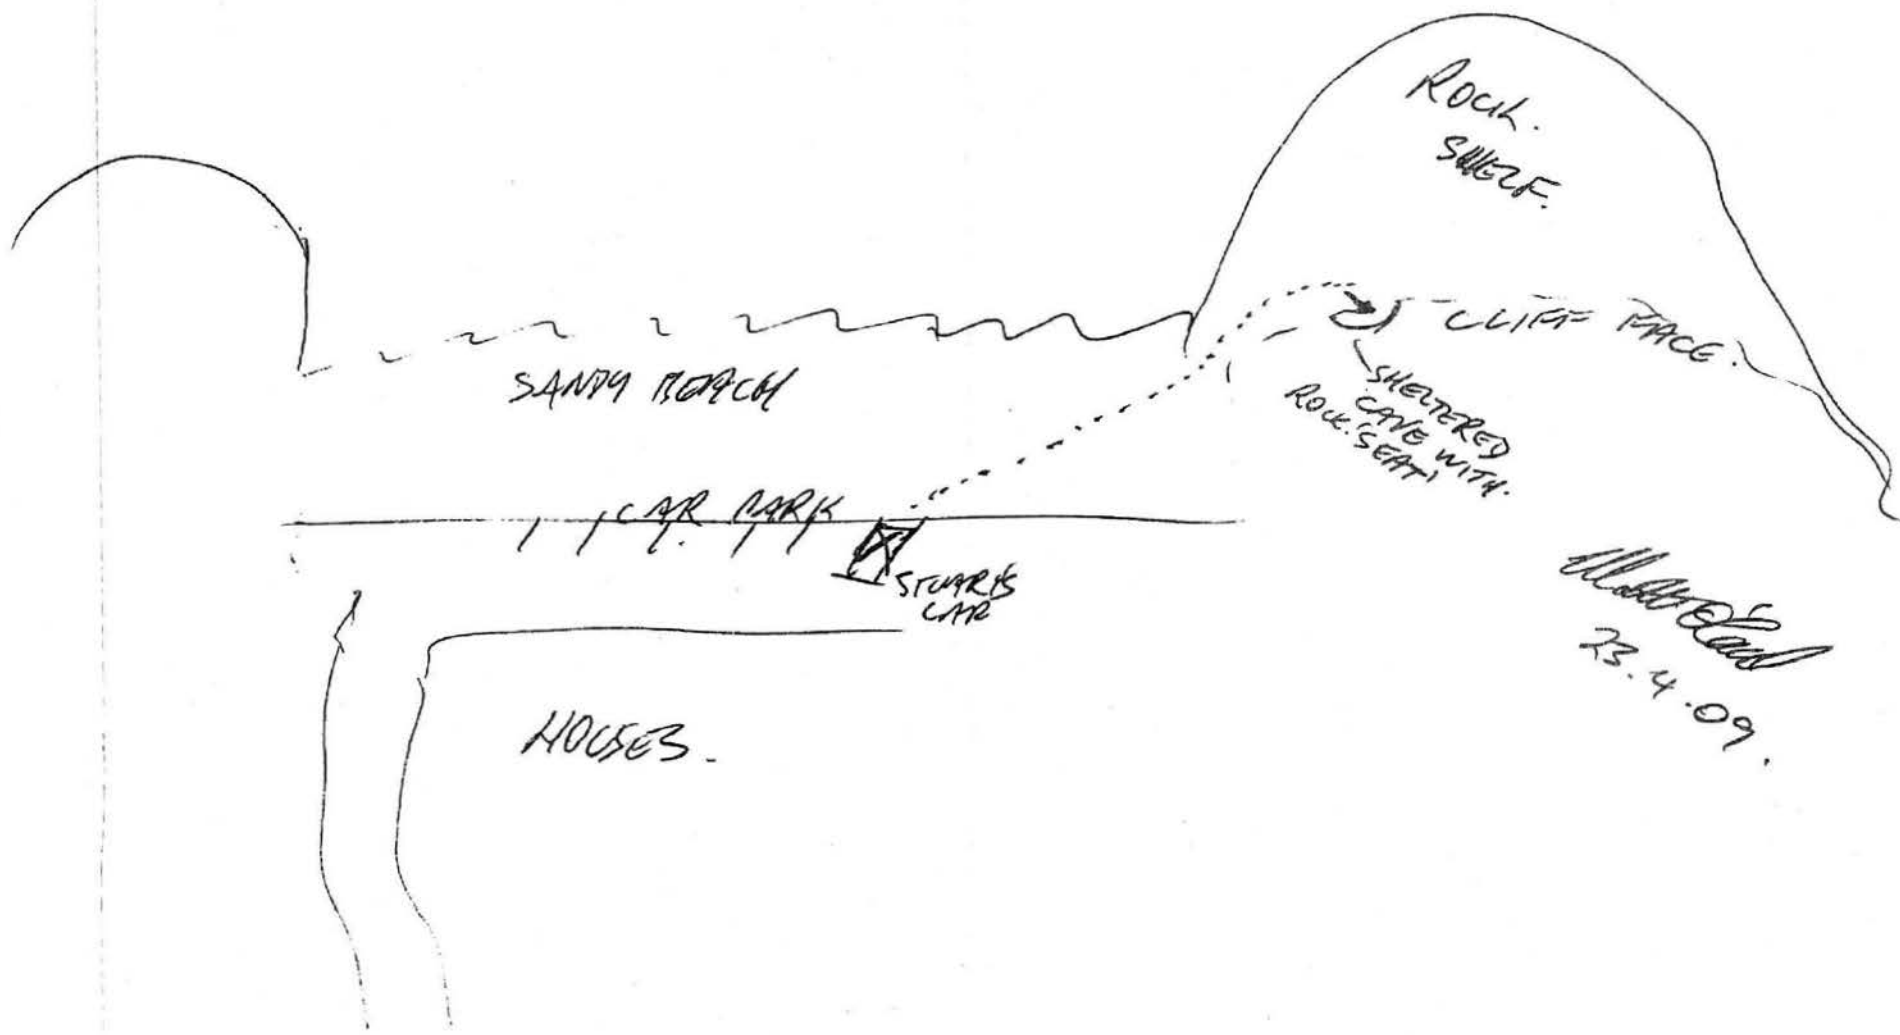 ROCK.
SHELF.
CLIFF FACE.
SANDY BEACH
SHELTERED
CAVE WITH.
ROCK 'SEAT'
CAR PARK
STUART'S
CAR
23.4.09.
HOUSES.